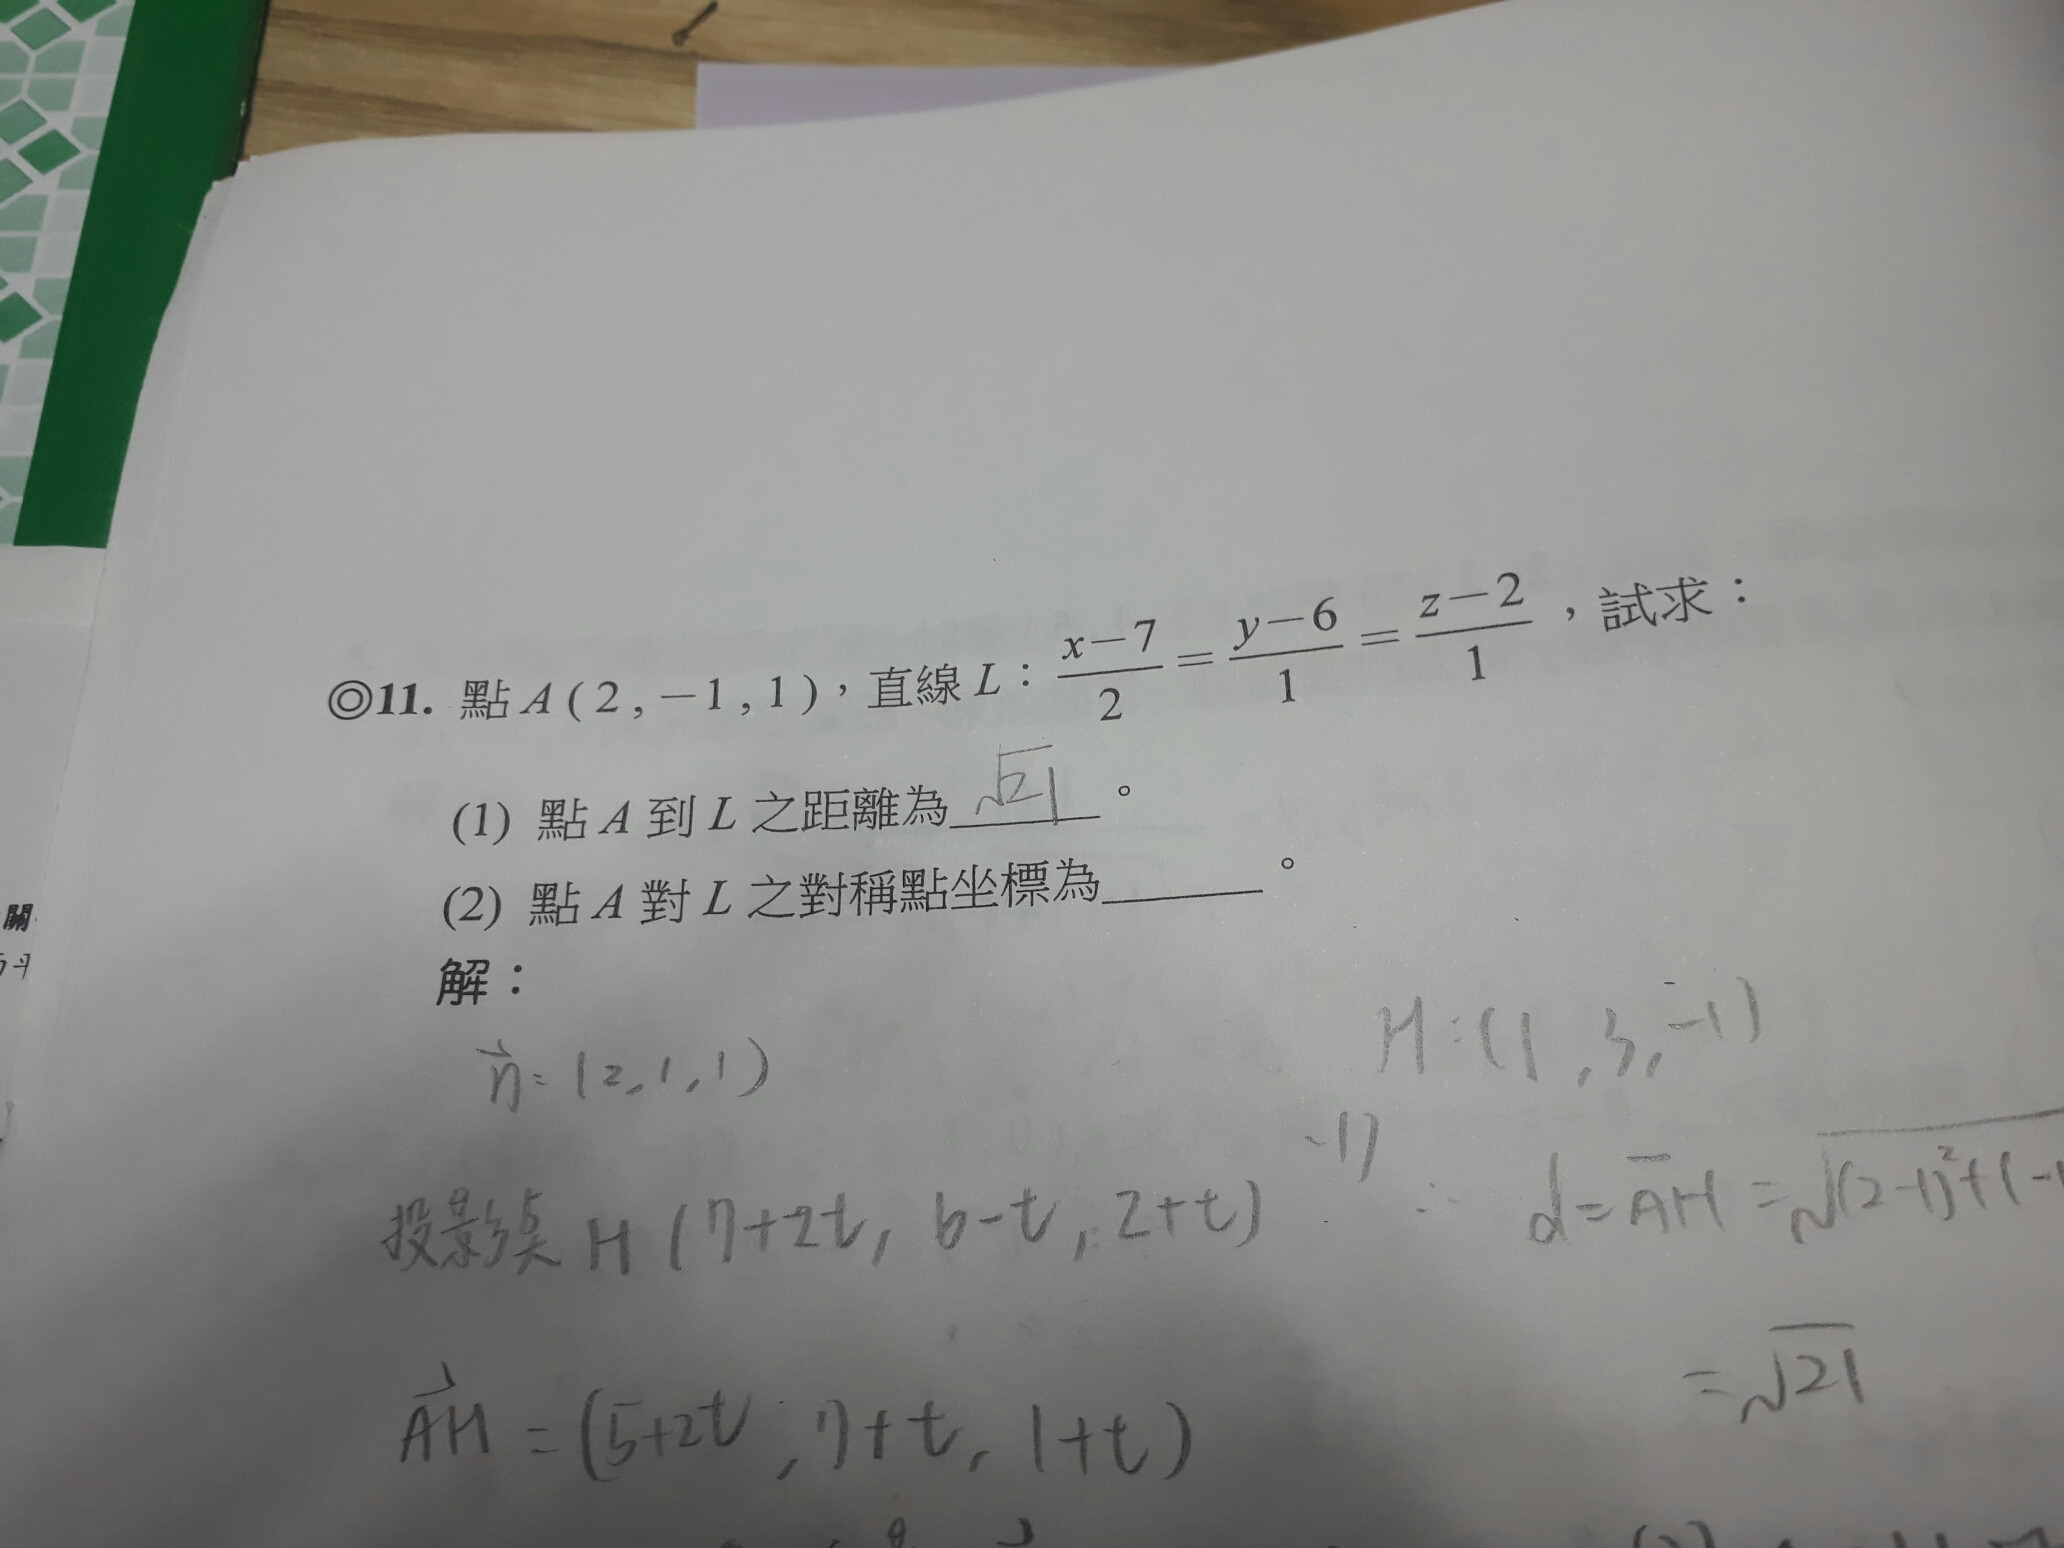 ◎11. 點 A ( 2 , −1 , 1 )，直線 L：\frac{x−7}{2} = \frac{y−6}{1} = \frac{z−2}{1}，試求：
(1) 點 A 到 L 之距離為 √21 。
(2) 點 A 對 L 之對稱點坐標為______。
關
解：
H:(1,3,-1)
n⃗=(2,1,1)
-1)
投影點 H (7+2t, 6-t, 2+t)
d=AH=√(2-1)²+(-1
=√21
AH⃗ = (5+2t, 7+t, 1+t)